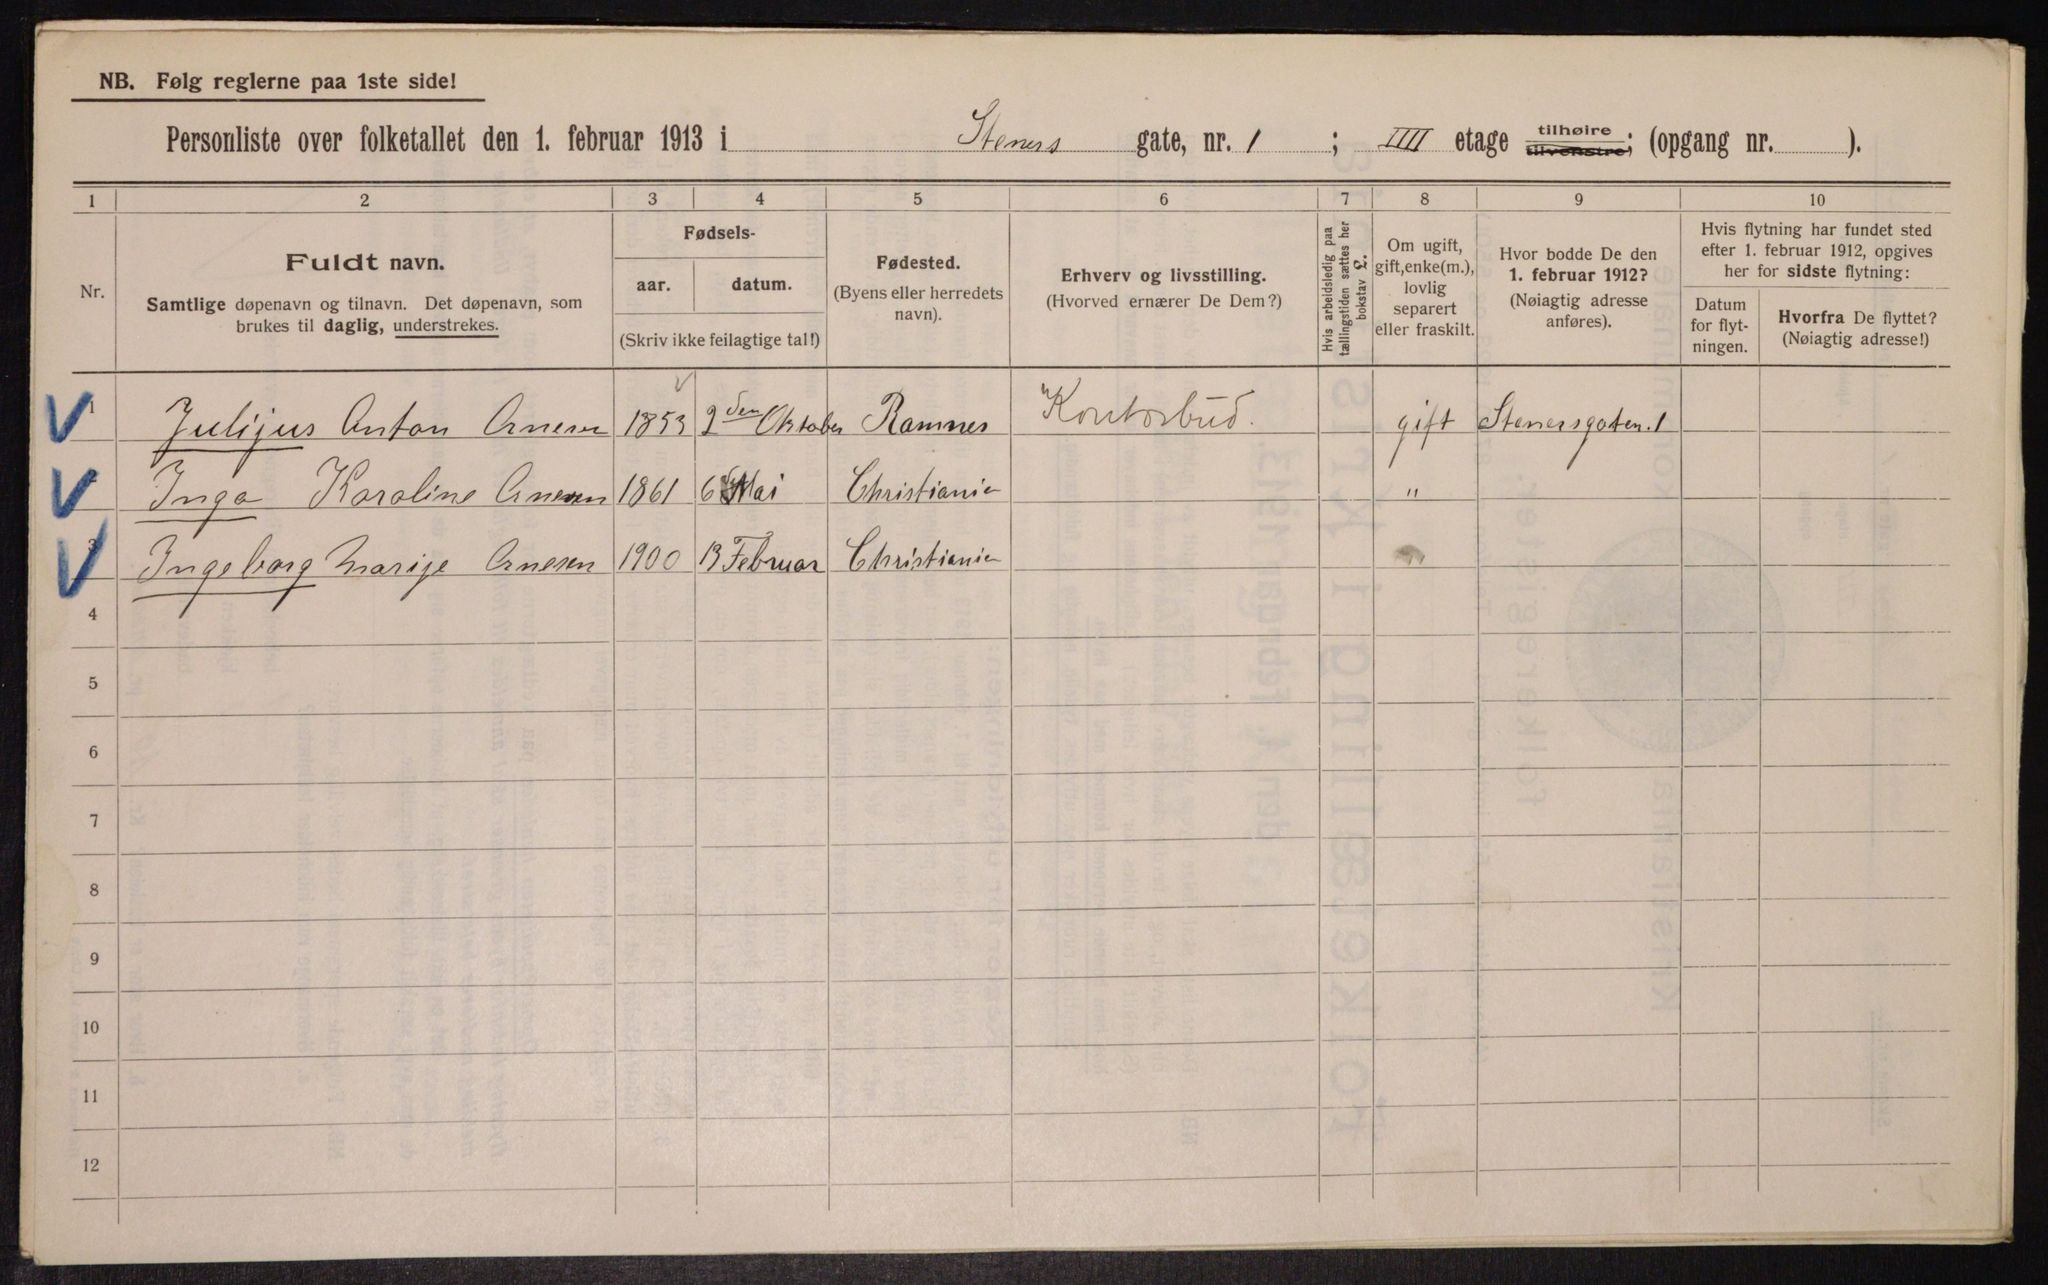 NB. Følg reglerne paa 1ste side!
Personliste over folketallet den 1. februar 1913 i Steners gate, nr. 1 ; IIII etage tilhøire tilvenstre; (opgang nr. ).
1 2 3 4 5 6 7 8 9 10
Nr.
Fuldt navn.
Samtlige døpenavn og tilnavn. Det døpenavn, som
brukes til daglig, understrekes.
Fødsels-
aar. datum.
(Skriv ikke feilagtige tal!)
Fødested.
(Byens eller herredets
navn).
Erhverv og livsstilling.
(Hvorved ernærer De Dem?)
Hvis arbeidsledig paa
tællingstiden sættes her
bokstav L.
Om ugift,
gift, enke(m.),
lovlig
separert
eller fraskilt.
Hvor bodde De den
1. februar 1912?
(Nøiagtig adresse
anføres).
Hvis flytning har fundet sted
efter 1. februar 1912, opgives
her for sidste flytning:
Datum
for flyt-
ningen.
Hvorfra De flyttet?
(Nøiagtig adresse!)
1 Julijus Anton Arnesen 1853 2 den Oktober Ramnes Kontorbud. gift Stenersgaten. 1
2 Inga Karoline Arnesen 1861 6 Mai Christiania "
3 Ingeborg Marije Arnesen 1900 13 Februar Christiania
4
5
6
7
8
9
10
11
12